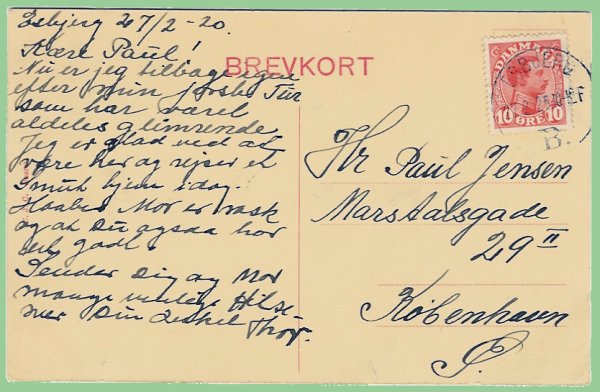 Esbjerg 27/2-20.
Kære Paul!
Nu er jeg tilbage igen
efter min første Tur
som har været
aldeles glimrende
Jeg er glad ved at
være her og rejser et
Smut hjem idag.
Haaber Mor er rask
og at Du ogsaa har
det godt.
Sender Dig og Mor
mange venlige Hilse
ner Din Onkel Thor.
BREVKORT
DANMARK
10 ØRE 10
B.
Hr Paul Jensen
Marstalsgade
29 II
København
Ø.